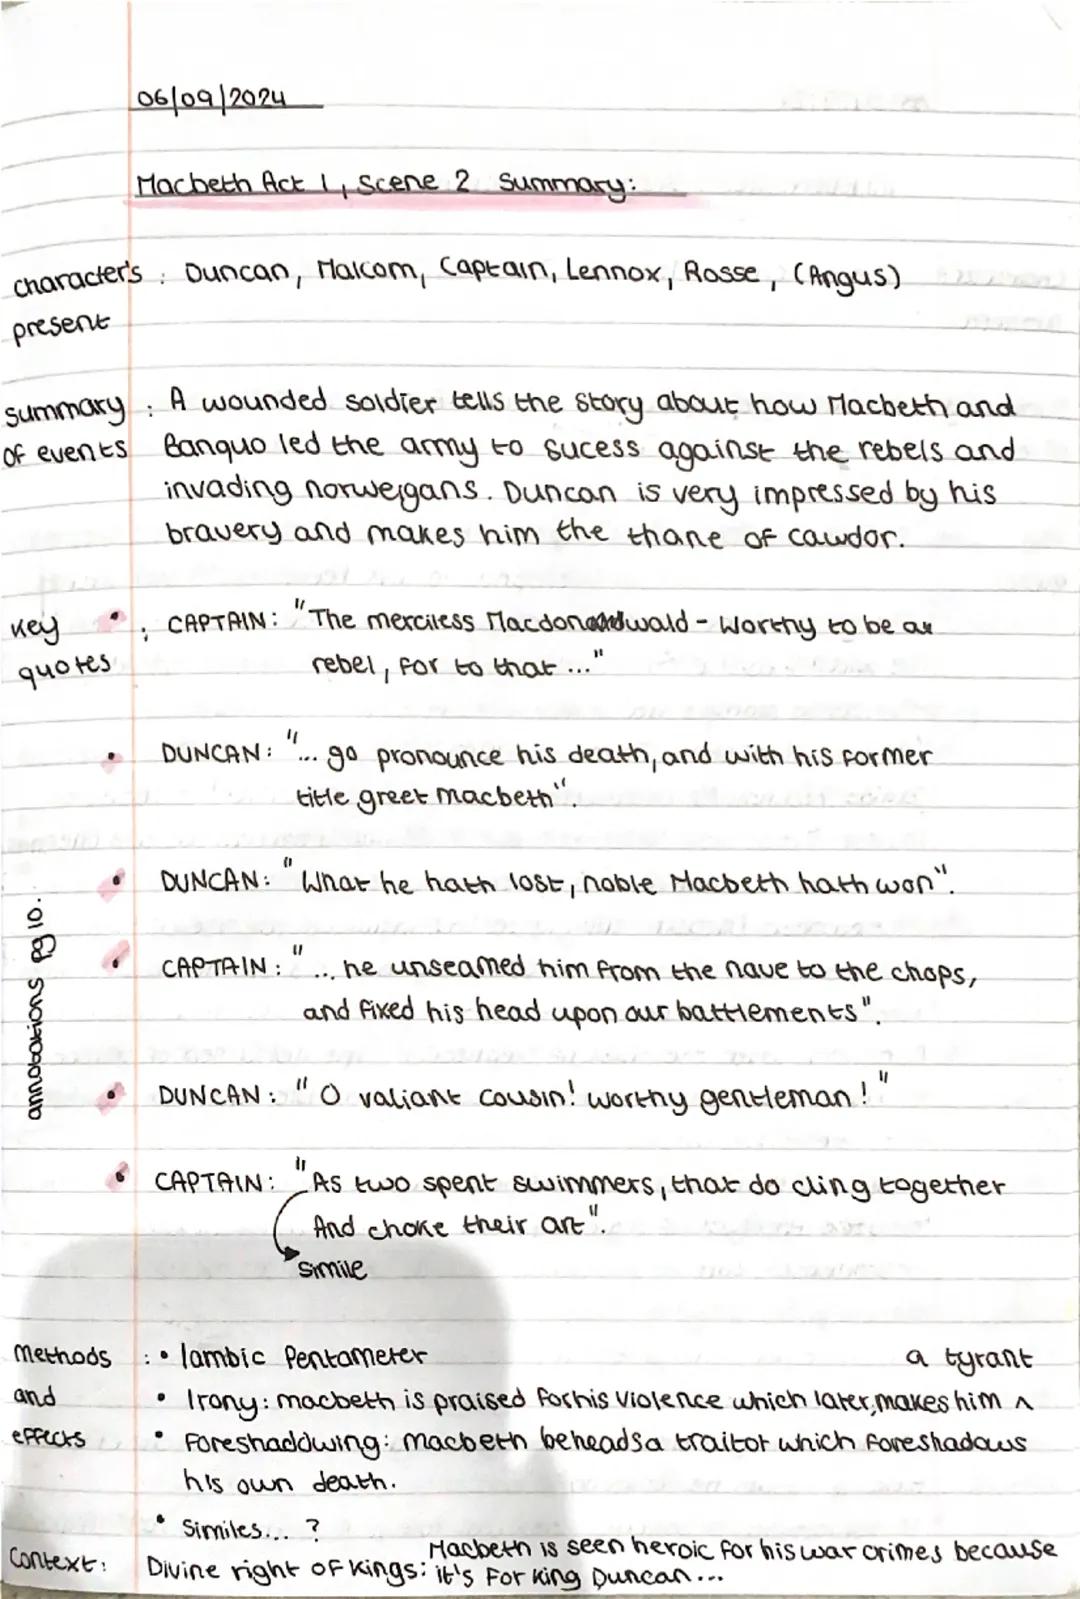 06/09/2024
Macbeth Act 1, Scene 2 Summary:
character's : Duncan, Malcom, Captain, Lennox, Rosse, (Angus)
present
summary : A wounded soldier tells the story about how Macbeth and
of events Banquo led the army to sucess against the rebels and
invading norwejgans. Duncan is very impressed by his
bravery and makes him the thane of cawdor.
Key : CAPTAIN: "The merciless Macdonwald - Worthy to be a
quotes rebel, for to that ..."
DUNCAN: "... go pronounce his death, and with his former
title greet macbeth".
DUNCAN: "What he hath lost, noble Macbeth hath won".
CAPTAIN: "... he unseamed him from the nave to the chops,
and fixed his head upon our battlements".
annotations pg 10.
DUNCAN: "O valiant cousin! worthy gentleman!"
CAPTAIN: "As two spent swimmers, that do cling together
And choke their art".
simile
methods : • Iambic Pentameter
and • Irony: macbeth is praised for his violence which later, makes him ^ a tyrant
effects • Foreshaddwing: macbeth beheads a traitor which foreshadows
his own death.
• Similes... ?
Context: Divine right of Kings: Macbeth is seen heroic for his war crimes because
it's for king Duncan...